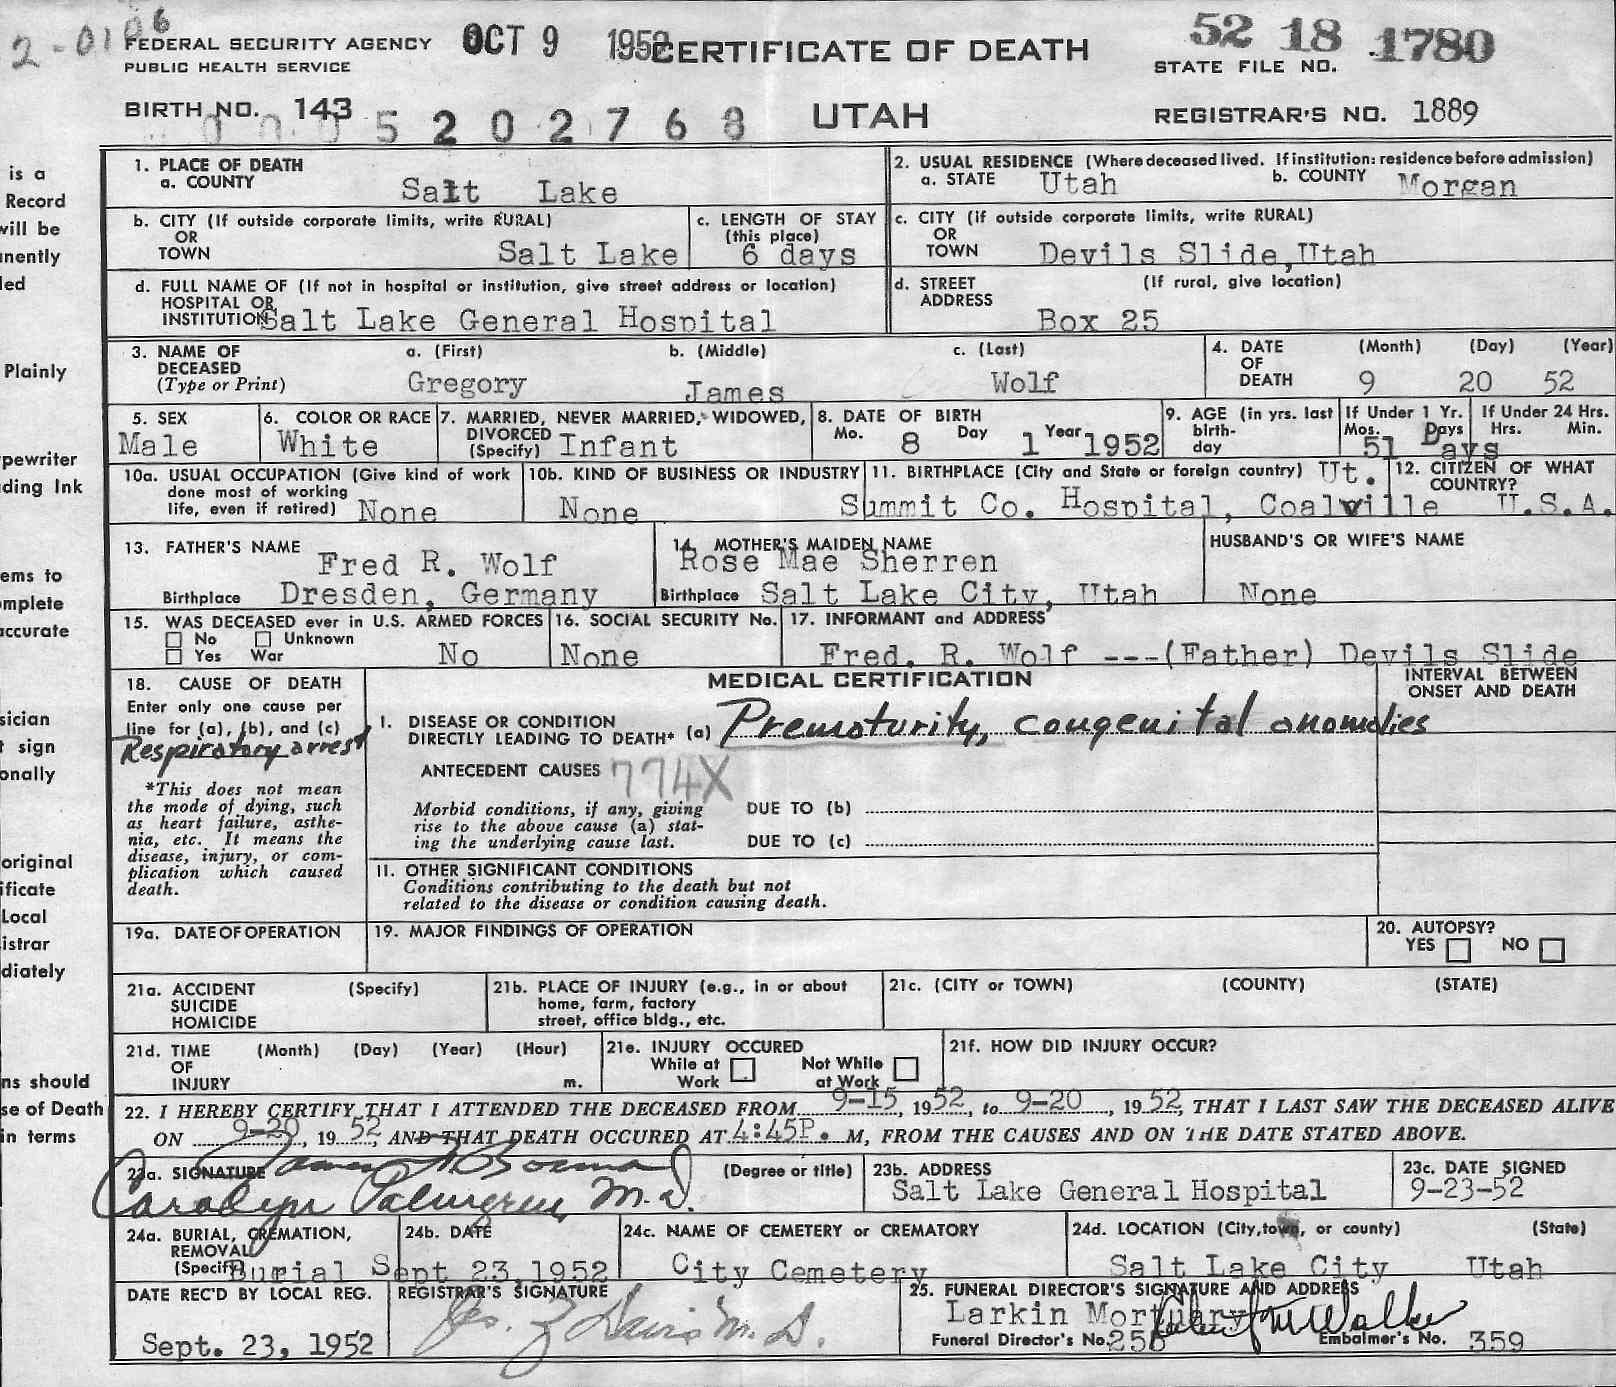 2-0106
FEDERAL SECURITY AGENCY OCT 9 1952 CERTIFICATE OF DEATH 52 18 1780
PUBLIC HEALTH SERVICE STATE FILE NO.
BIRTH NO. 143 UTAH REGISTRAR'S NO. 1889
5202768
1. PLACE OF DEATH
a. COUNTY Salt Lake
2. USUAL RESIDENCE (Where deceased lived. If institution: residence before admission)
a. STATE Utah b. COUNTY Morgan
b. CITY (If outside corporate limits, write RURAL)
OR
TOWN Salt Lake
c. LENGTH OF STAY
(this place)
6 days
c. CITY (if outside corporate limits, write RURAL)
OR
TOWN Devils Slide, Utah
d. FULL NAME OF (If not in hospital or institution, give street address or location)
HOSPITAL OR
INSTITUTION Salt Lake General Hospital
d. STREET (If rural, give location)
ADDRESS
Box 25
3. NAME OF a. (First) b. (Middle) c. (Last)
DECEASED
(Type or Print) Gregory James Wolf
4. DATE (Month) (Day) (Year)
OF
DEATH 9 20 52
5. SEX
Male
6. COLOR OR RACE
White
7. MARRIED, NEVER MARRIED, WIDOWED,
DIVORCED
(Specify) Infant
8. DATE OF BIRTH
Mo. 8 Day 1 Year 1952
9. AGE (in yrs. last
birth-
day
If Under 1 Yr.
Mos. Days
51 Days
If Under 24 Hrs.
Hrs. Min.
10a. USUAL OCCUPATION (Give kind of work
done most of working
life, even if retired) None
10b. KIND OF BUSINESS OR INDUSTRY
None
11. BIRTHPLACE (City and State or foreign country) Ut.
Summit Co. Hospital, Coalville
12. CITIZEN OF WHAT
COUNTRY?
U.S.A.
13. FATHER'S NAME
Fred R. Wolf
Birthplace Dresden, Germany
14. MOTHER'S MAIDEN NAME
Rose Mae Sherren
Birthplace Salt Lake City, Utah
HUSBAND'S OR WIFE'S NAME
None
15. WAS DECEASED ever in U.S. ARMED FORCES
No Unknown
Yes War No
16. SOCIAL SECURITY No.
None
17. INFORMANT and ADDRESS
Fred. R. Wolf ---(Father) Devils Slide
18. CAUSE OF DEATH
Enter only one cause per
line for (a), (b), and (c)
Respiratory arrest
*This does not mean
the mode of dying, such
as heart failure, asthe-
nia, etc. It means the
disease, injury, or com-
plication which caused
death.
MEDICAL CERTIFICATION
INTERVAL BETWEEN
ONSET AND DEATH
I. DISEASE OR CONDITION
DIRECTLY LEADING TO DEATH* (a) Prematurity, congenital anomalies
ANTECEDENT CAUSES 774X
Morbid conditions, if any, giving DUE TO (b)
rise to the above cause (a) stat-
ing the underlying cause last. DUE TO (c)
II. OTHER SIGNIFICANT CONDITIONS
Conditions contributing to the death but not
related to the disease or condition causing death.
19a. DATE OF OPERATION
19. MAJOR FINDINGS OF OPERATION
20. AUTOPSY?
YES NO
21a. ACCIDENT (Specify)
SUICIDE
HOMICIDE
21b. PLACE OF INJURY (e.g., in or about
home, farm, factory
street, office bldg., etc.
21c. (CITY or TOWN) (COUNTY) (STATE)
21d. TIME (Month) (Day) (Year) (Hour)
OF
INJURY m.
21e. INJURY OCCURED
While at Not While
Work at Work
21f. HOW DID INJURY OCCUR?
22. I HEREBY CERTIFY THAT I ATTENDED THE DECEASED FROM 9-15, 1952, to 9-20, 1952, THAT I LAST SAW THE DECEASED ALIVE
ON 9-20, 1952, AND THAT DEATH OCCURED AT 4:45P. M, FROM THE CAUSES AND ON THE DATE STATED ABOVE.
23a. SIGNATURE (Degree or title)
Carolyn Palmgren, M.D.
23b. ADDRESS
Salt Lake General Hospital
23c. DATE SIGNED
9-23-52
24a. BURIAL, CREMATION,
REMOVAL
(Specify) Burial
24b. DATE
Sept 23, 1952
24c. NAME OF CEMETERY or CREMATORY
City Cemetery
24d. LOCATION (City, town, or county) (State)
Salt Lake City Utah
DATE REC'D BY LOCAL REG.
Sept. 23, 1952
REGISTRAR'S SIGNATURE
Davis M.D.
25. FUNERAL DIRECTOR'S SIGNATURE AND ADDRESS
Larkin Mortuary
Funeral Director's No. Embalmer's No. 359
is a
Record
will be
nently
led
Plainly
pewriter
ding Ink
ems to
mplete
accurate
sician
t sign
onally
original
ificate
Local
istrar
diately
ns should
se of Death
in terms